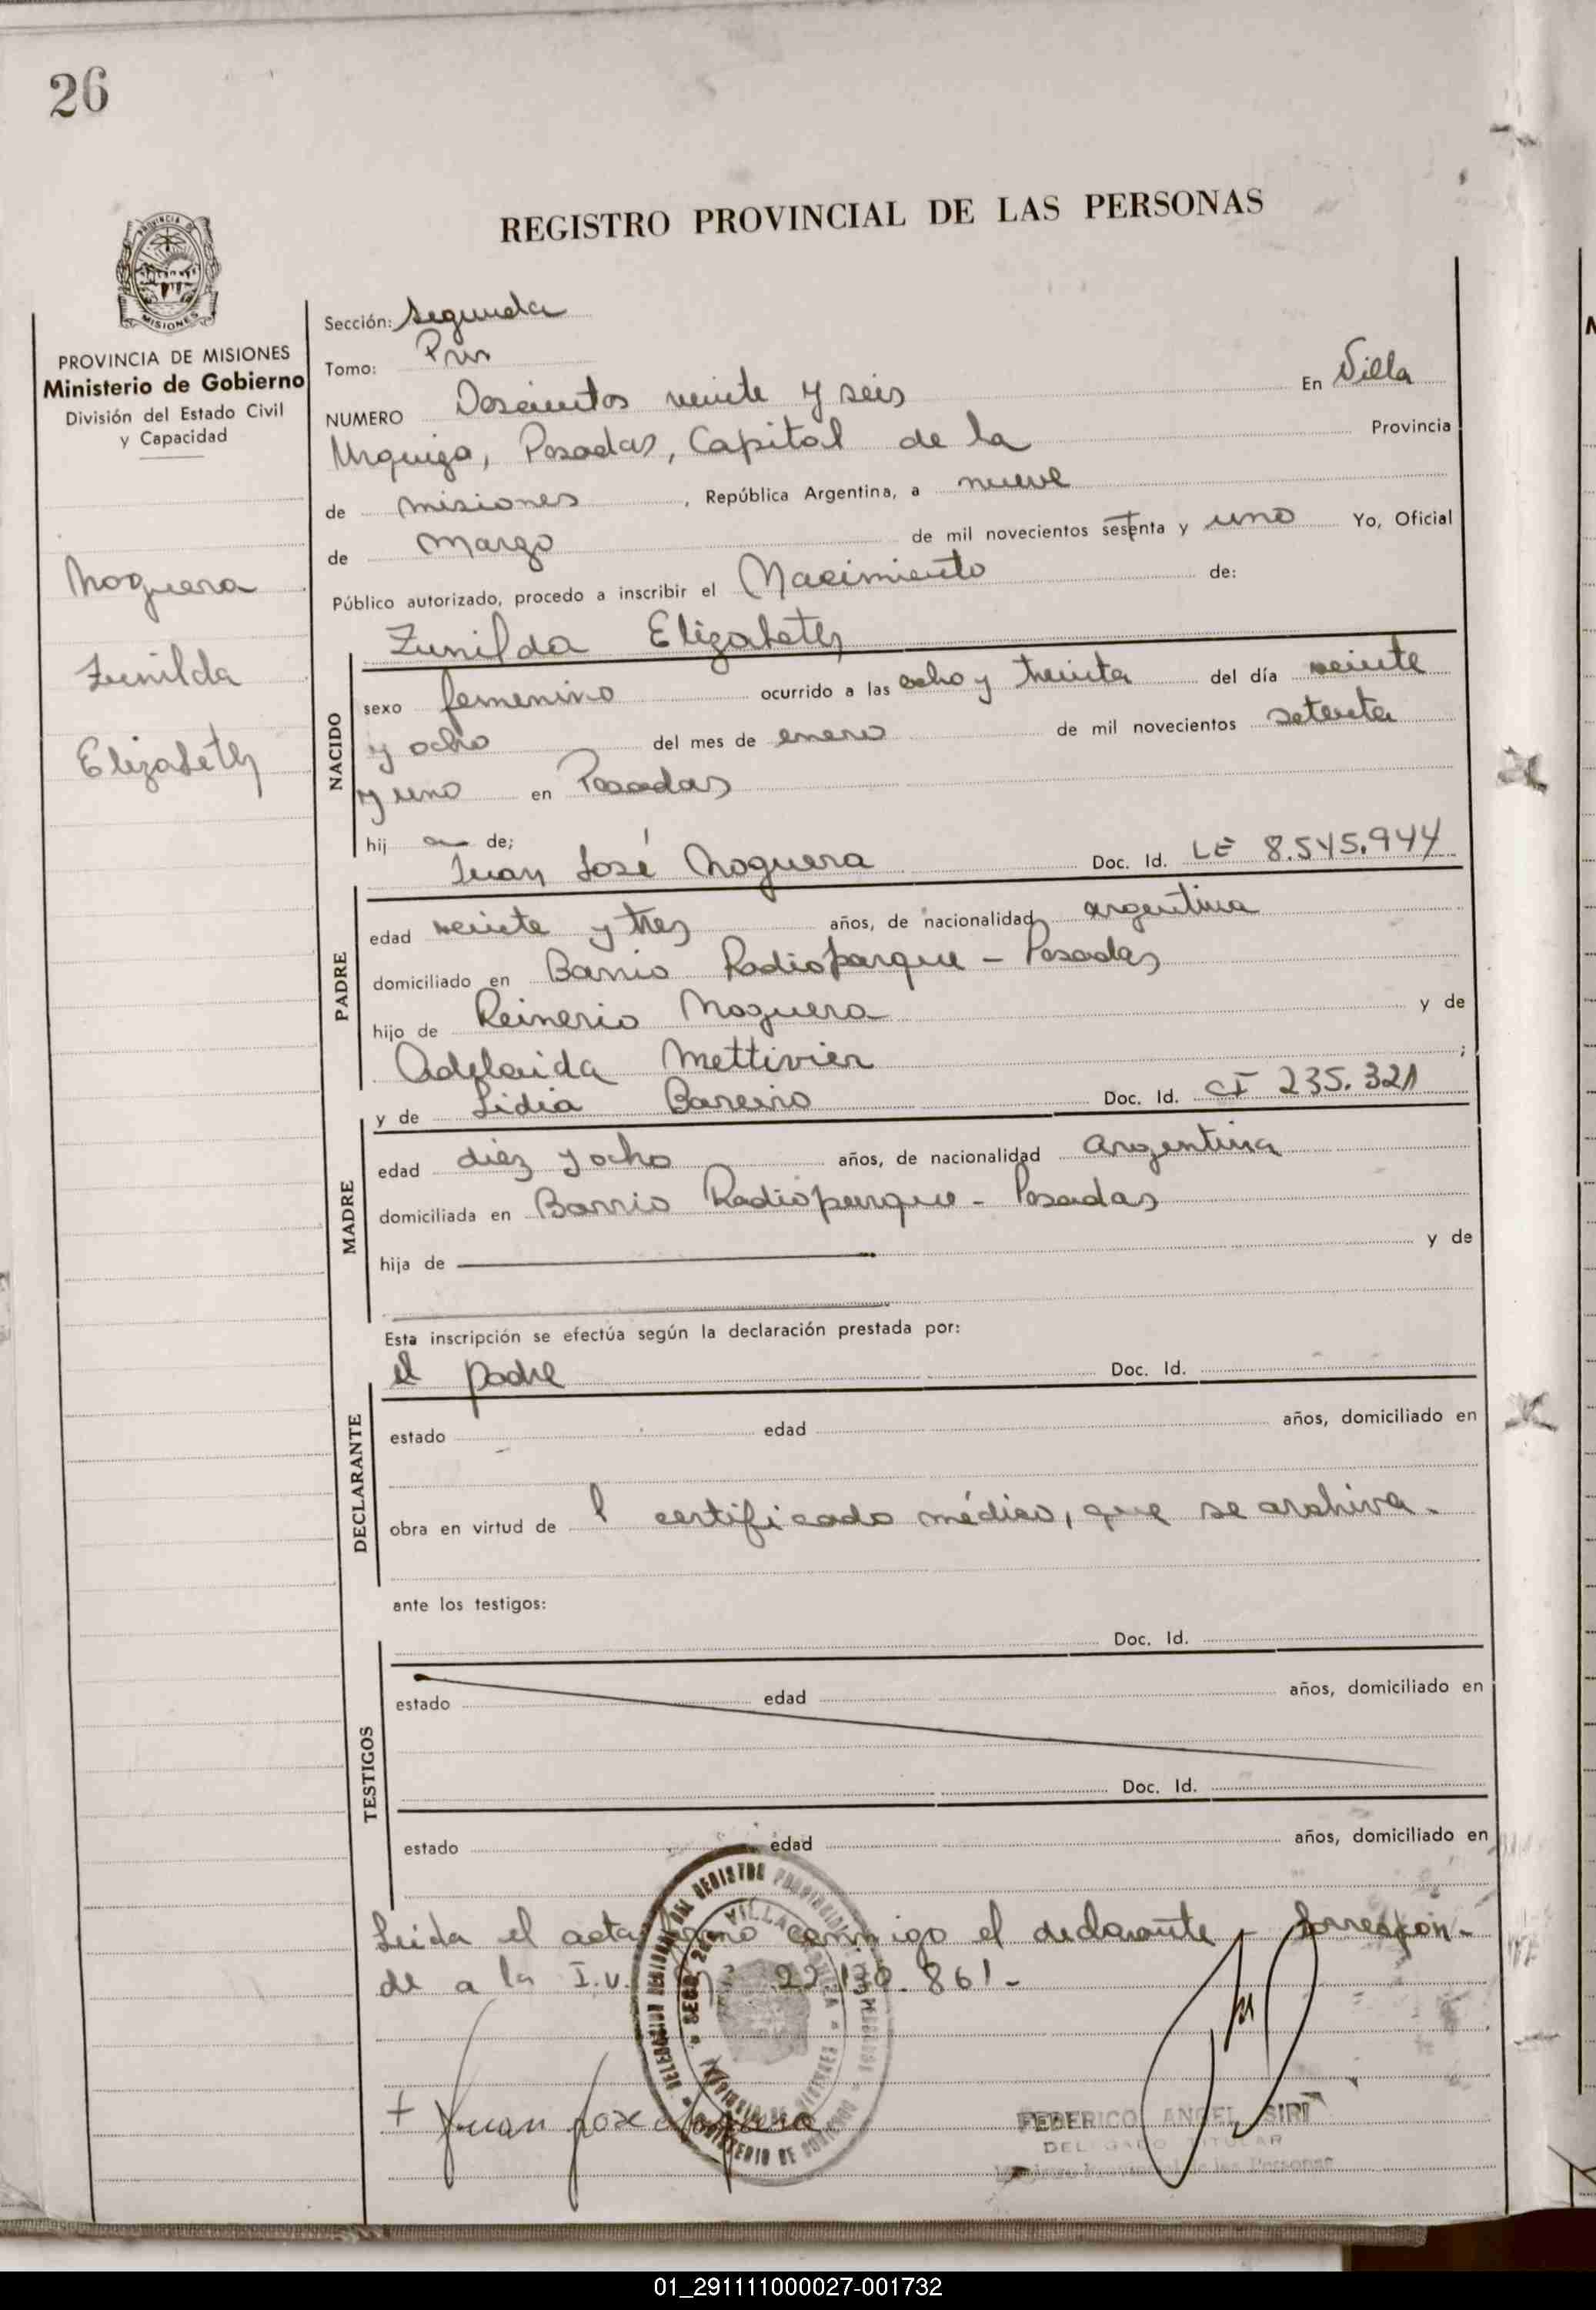 26
REGISTRO PROVINCIAL DE LAS PERSONAS
PROVINCIA DE MISIONES
Ministerio de Gobierno
División del Estado Civil
y Capacidad
Noguera
Zunilda
Elizabeth
Sección: Segunda
Tomo: Prim
NUMERO Doscientos veinte y seis En Villa
Urquiza, Posadas, Capital de la Provincia
de Misiones, República Argentina, a nueve
de Marzo de mil novecientos setenta y uno Yo, Oficial
Público autorizado, procedo a inscribir el Nacimiento de:
Zunilda Elizabeth
NACIDO
sexo femenino ocurrido a las ocho y treinta del día veinte
y ocho del mes de enero de mil novecientos setenta
y uno en Posadas
hij a de;
Juan José Noguera Doc. Id. LE 8.545.944
PADRE
edad veinte y tres años, de nacionalidad argentina
domiciliado en Barrio Radioparque - Posadas
hijo de Reinerio Noguera y de
Adelaida Mettivier ;
y de Lidia Bareiro Doc. Id. CI 235.321
MADRE
edad diez y ocho años, de nacionalidad argentina
domiciliada en Barrio Radioparque - Posadas
hija de y de
Esta inscripción se efectúa según la declaración prestada por:
el padre Doc. Id.
DECLARANTE
estado edad años, domiciliado en
obra en virtud de l certificado médico, que se archiva.
ante los testigos:
Doc. Id.
TESTIGOS
estado edad años, domiciliado en
Doc. Id.
estado edad años, domiciliado en
Leida el acta firmó conmigo el declarante - Correspon-
de a la I.U. 861-
Juan Jose Noguera
FEDERICO ANGEL SIRI
DELEGADO TITULAR
Registro Provincial de las Personas
01_291111000027-001732